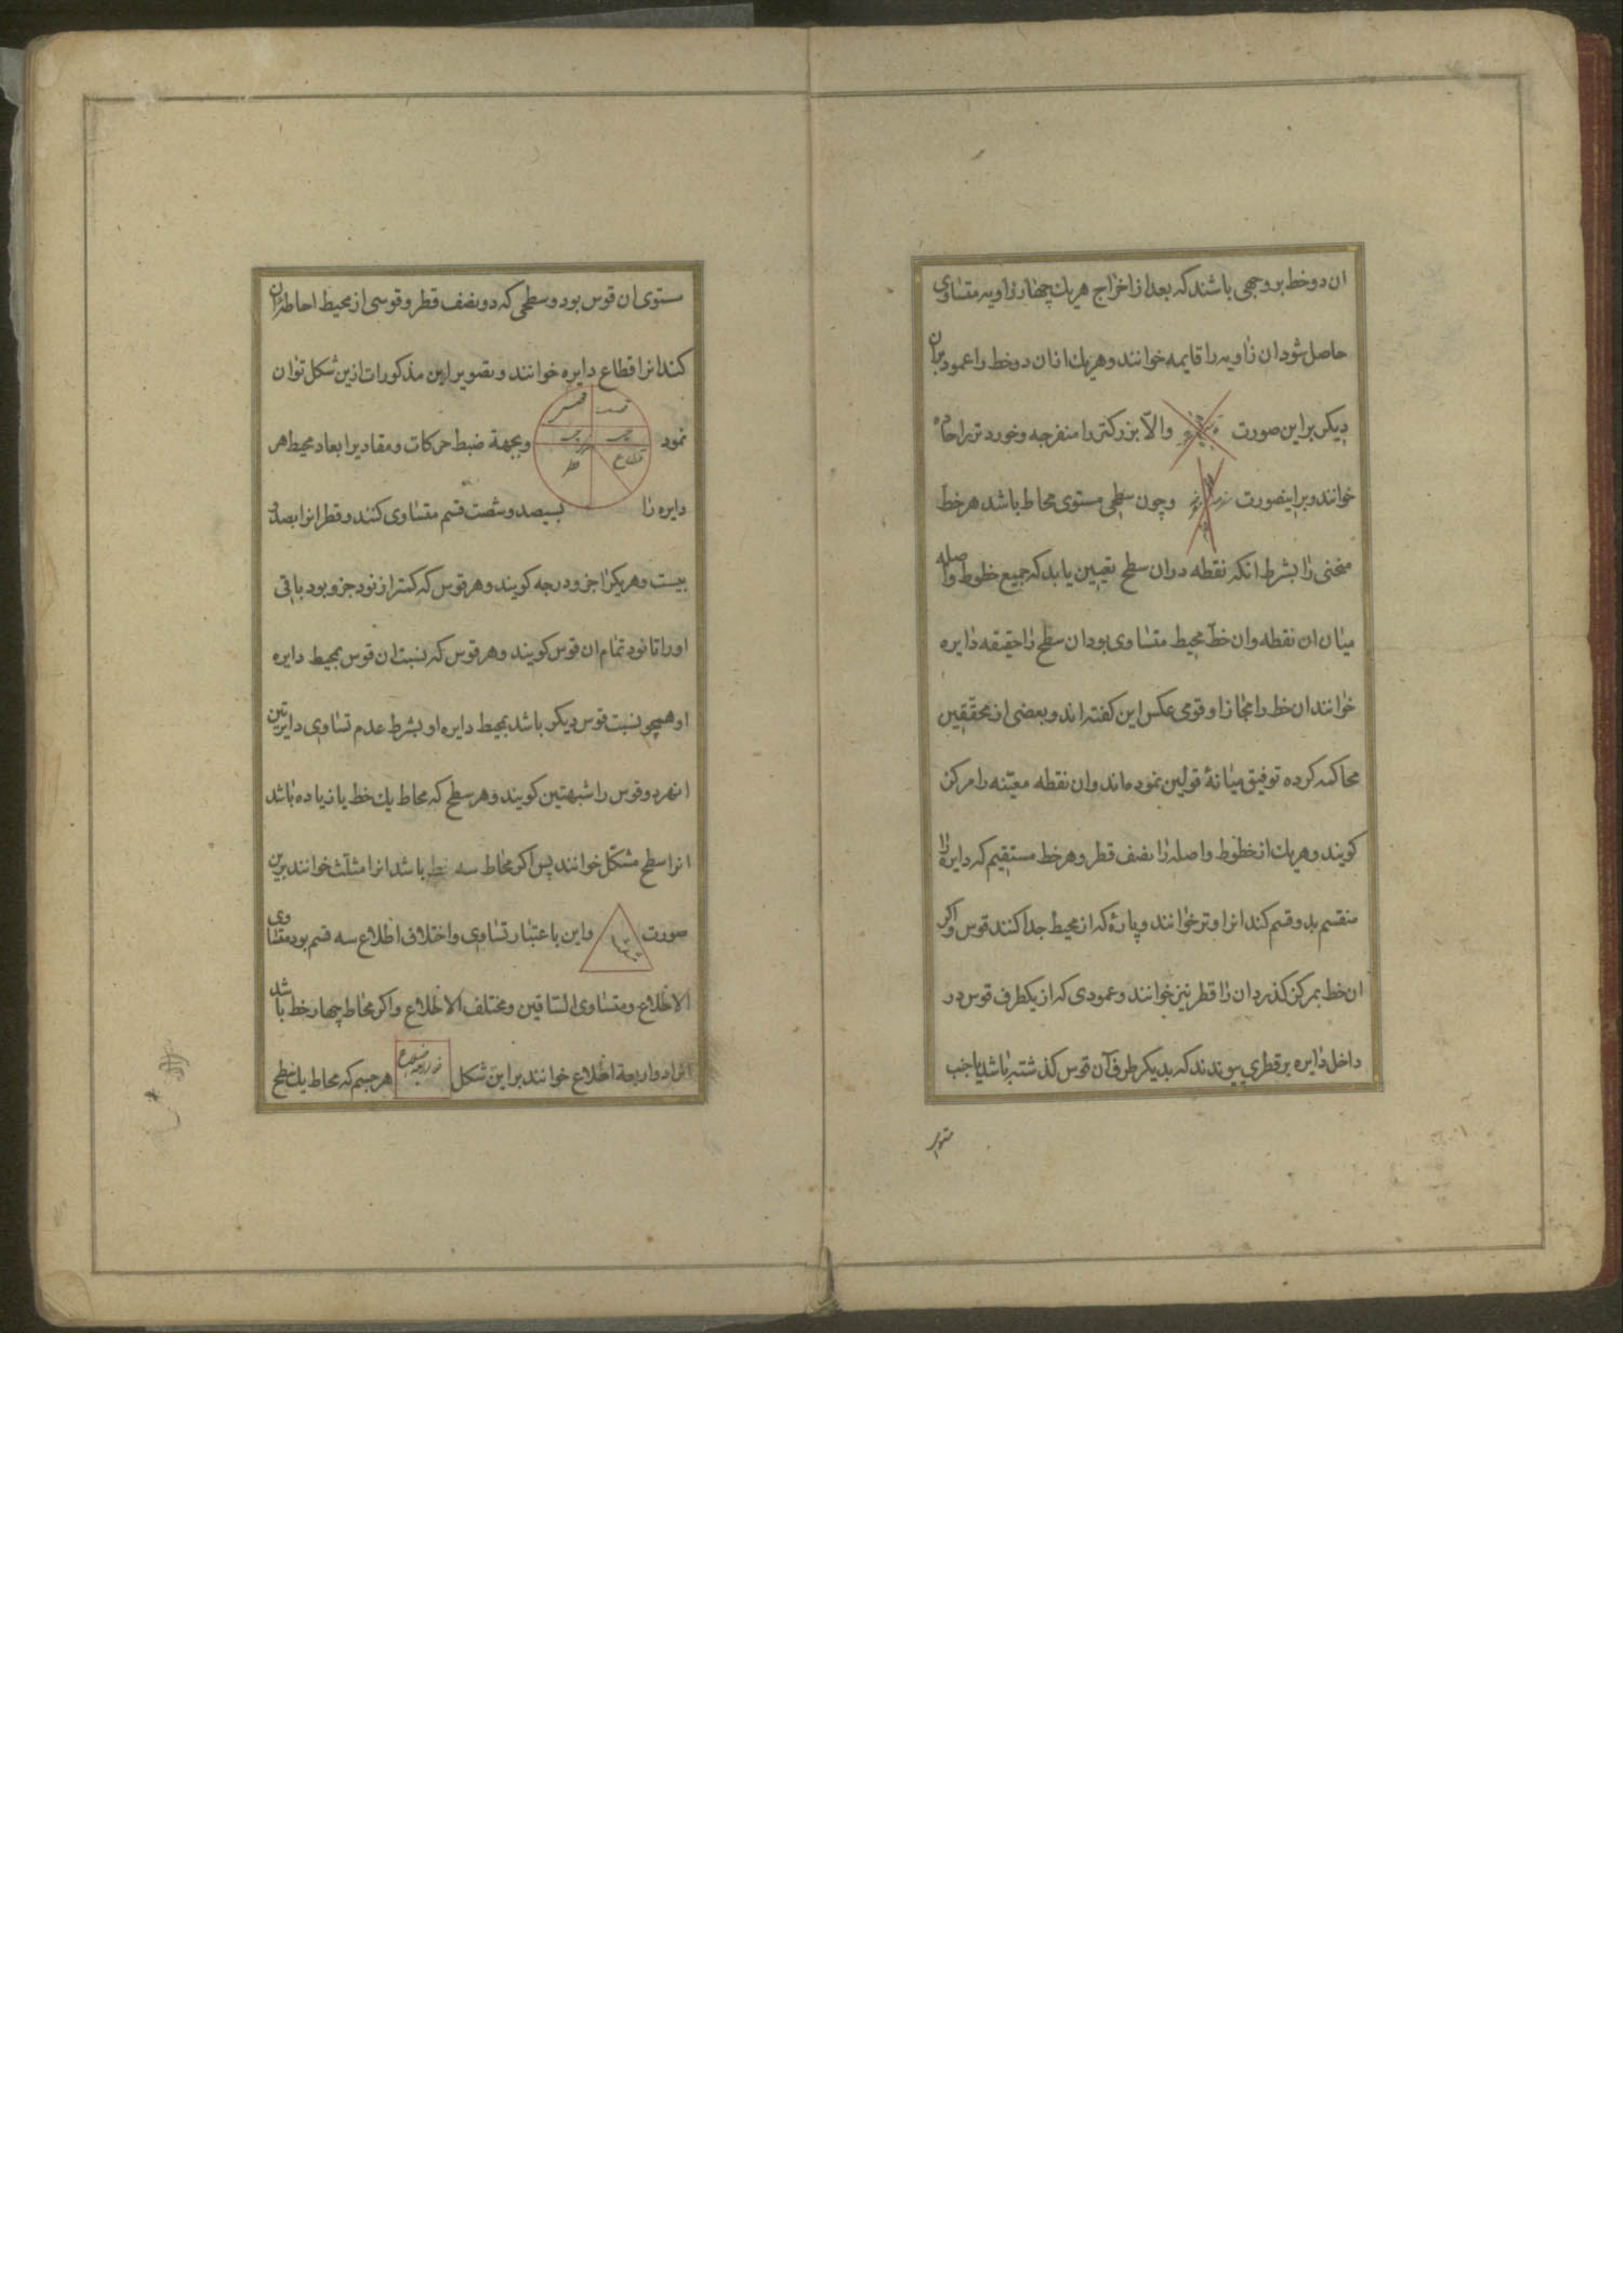 ان دو خط بر وجهی باشند که بعد از اخراج هریك چهار زاویه متساوی
حاصل شود ان زاویه را قایمه خوانند و هریك از ان دو خط را عمود بران
دیکر بر این صورت والّا بزرکتر را منفرجه و خورد تر را حاده
خوانند و بر اینصورت و چون سطحی مستوی محاط باشد هر خط
منحنی را بشرط انکه نقطه در ان سطح تعیین یابد که جمیع خطوط واصله
میان ان نقطه و ان خط محیط متساوی بود ان سطح را حقیقه دایره
خوانند ان خط را مجازا و قومی عکس این کفته اند و بعضی از محققین
محاکمه کرده توفیق میانهٔ قولین نموده اند و ان نقطه معیّنه را مرکز
کویند و هریك از خطوط واصله را نصف قطر و هر خط مستقیم که دایره را
منقسم بدو قسم کند انرا وتر خوانند و پارهٔ که از محیط جدا کنند قوس و اکر
ان خط بمرکز کذرد ان را قطر نیز خوانند و عمودی که از یکطرف قوس در
داخل دایره بر قطری پیوندند که بدیکر طرف آن قوس کذشته باشد یا جیب
مستوی ان قوس بود و سطحی که دو نصف قطر و قوسی از محیط احاطه بران
کند انرا قطاع دایره خوانند و تصویر این مذکورات ازین شکل توان
نمود و بجهة ضبط حرکات و مقادیر ابعاد محیط هر
قطاع
دایره را بسیصد و شصت قسم متساوی کنند و قطر انرا بصد و
بیست و هریکرا جزو درجه کویند و هر قوس که کمتر از نود جزو بود باقی
او را تا نود تمام ان قوس کویند و هر قوس که نسبت ان قوس بمحیط دایره
او همچو نسبت قوس دیکر باشد بمحیط دایره او بشرط عدم تساوی دایرتین
انهر دو قوس را شبهتین کویند و هر سطح که محاط یك خط یا زیاده باشد
انرا سطح مشکّل خوانند پس اکر محاط سه خط باشد انرا مثلّث خوانند برین
صورت و این باعتبار تساوی و اختلاف اظلاع سه قسم بود متساوی
الاظلاع و متساوی الساقین و مختلف الاظلاع و اکر محاط چهار خط باشد
انرا ذو اربعة اظلاع خوانند بر این شکل هر جسم که محاط یك سطح